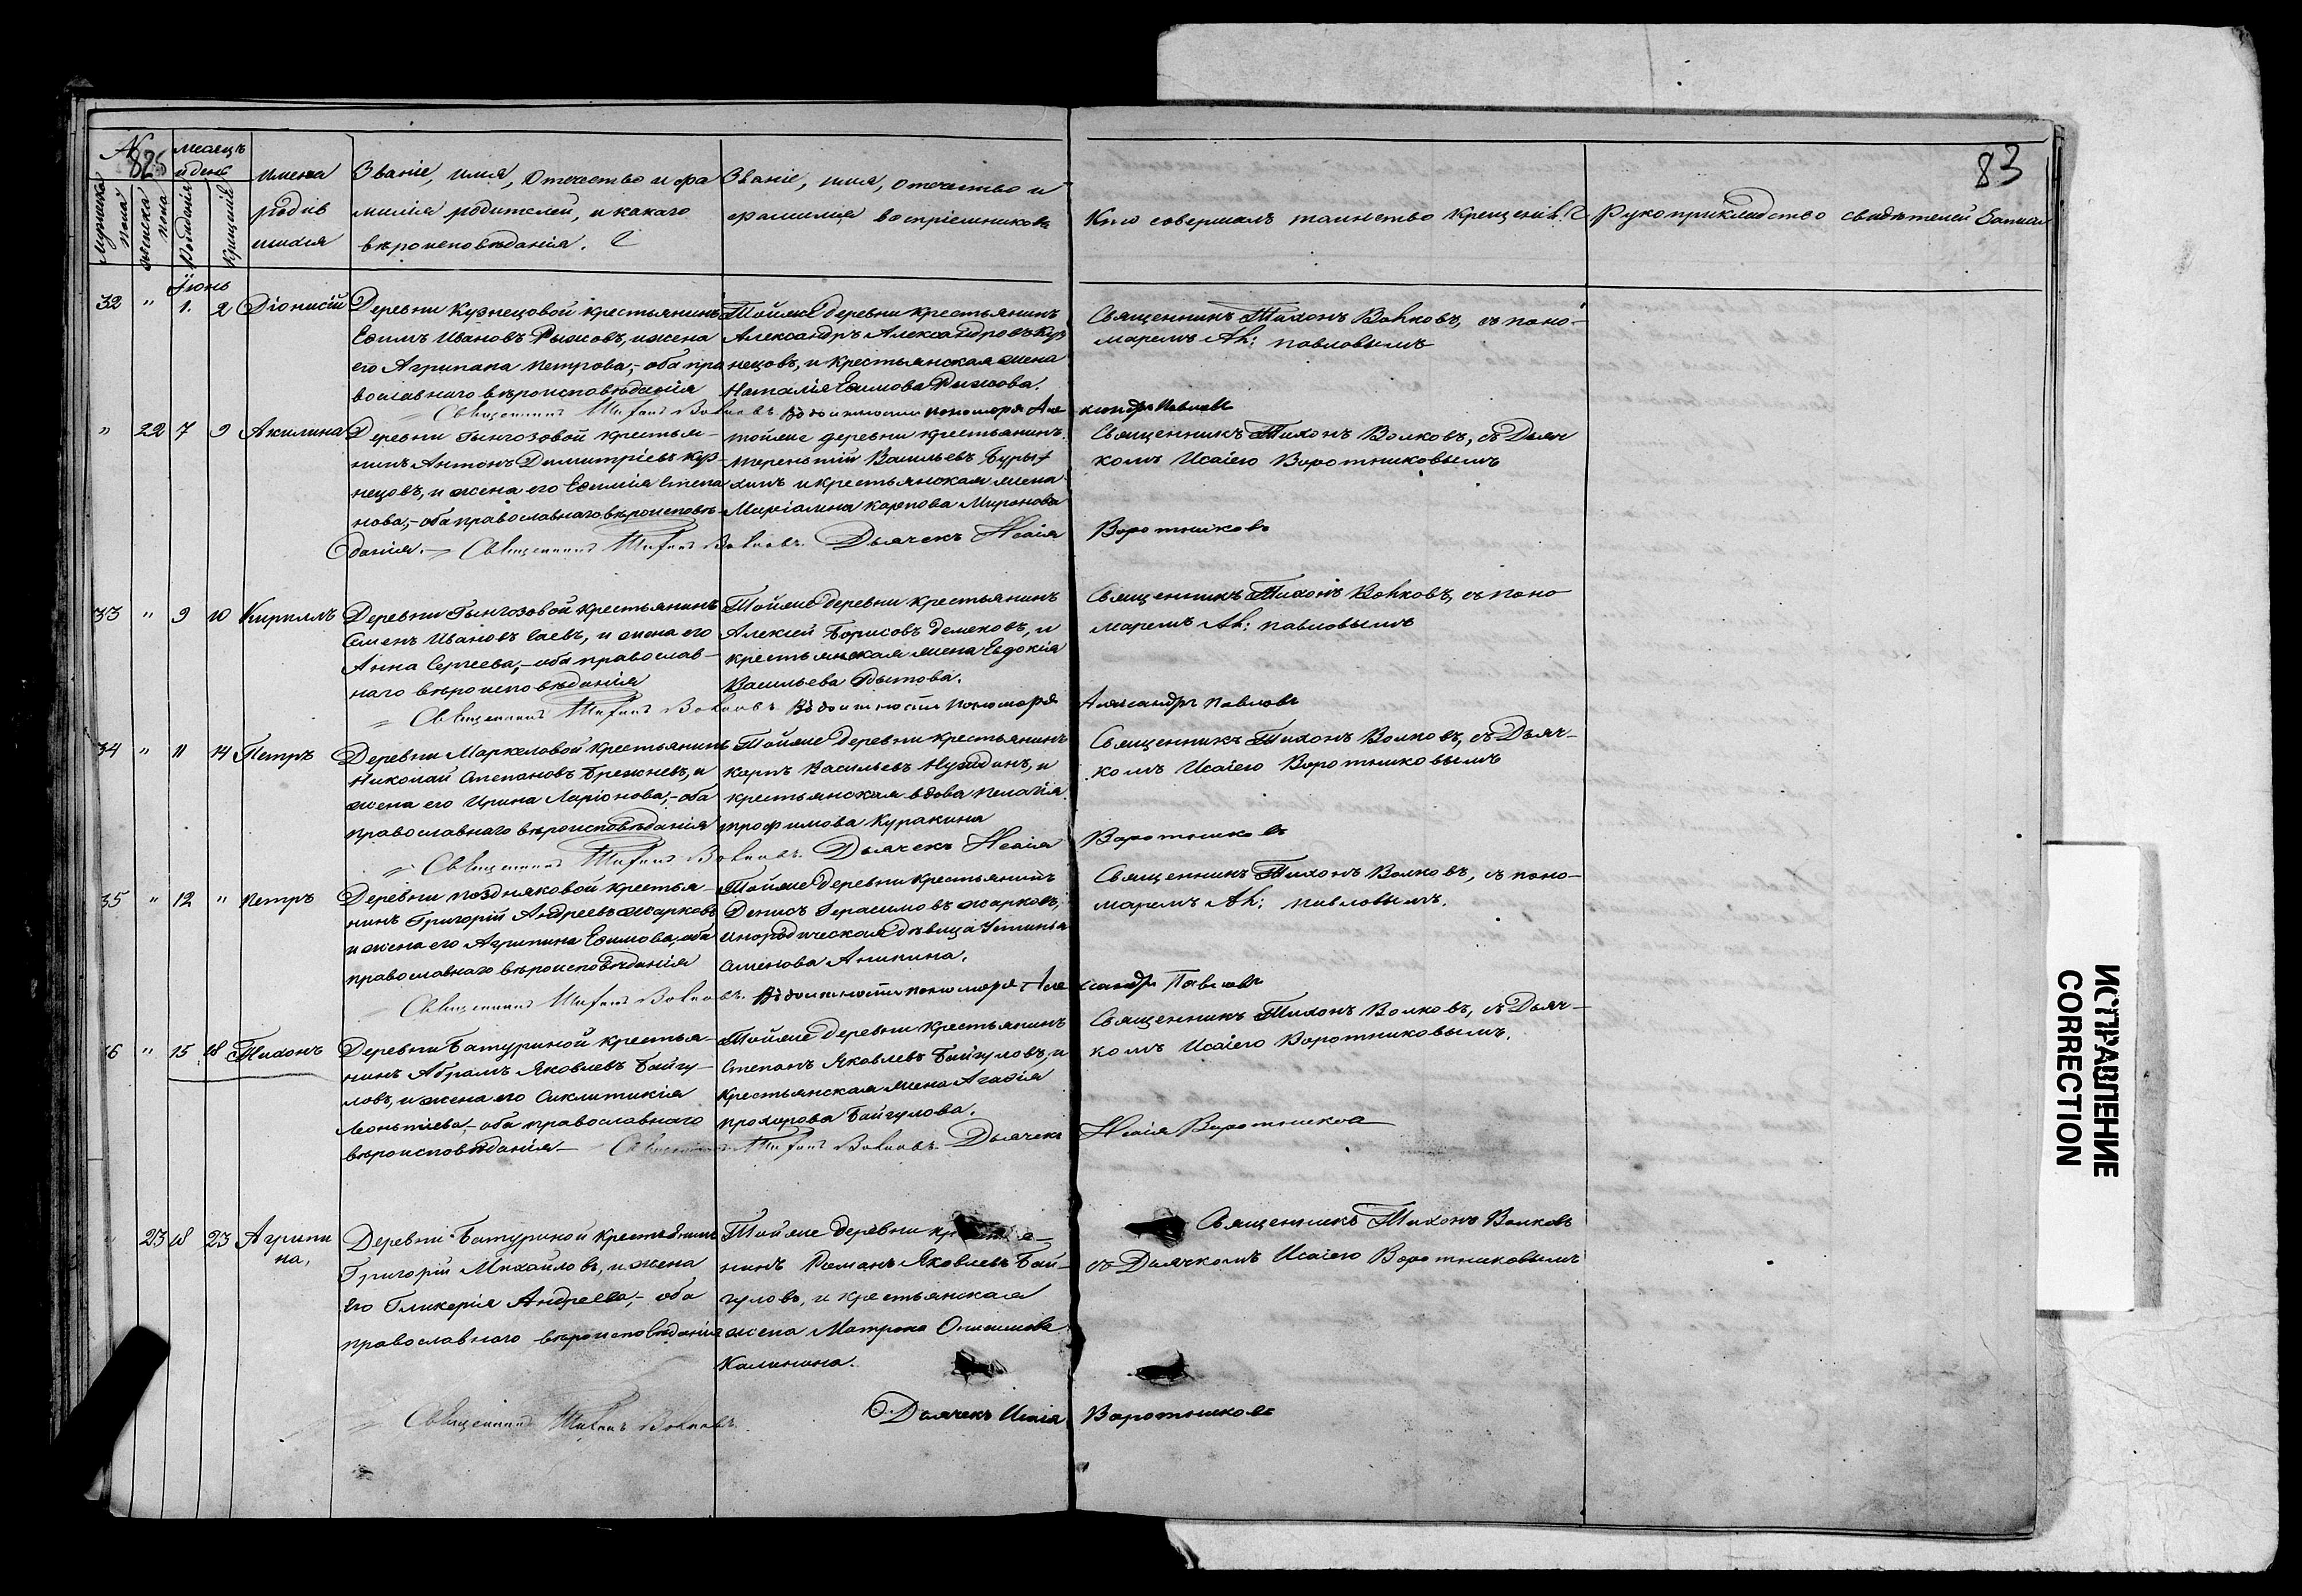 № 825
мѣсяцъ и день
Мужеска пола
женска пола
рожденія
крещенія
имена родив шихся
Званіе, имя, отчество и фа
милія родителей, и какаго
вѣроисповѣданія.
Званіе, имя, отчество и
фамилія воспріемниковъ
Кто совершалъ таинство крещенія.
Рукоприкладство свидѣтелей записи
83
Іюнь
32 " 1. 2 Діонисій
Деревни Кузнецовой крестьянинъ
Ефимъ Ивановъ Рыжовъ, и жена
его Агрипана Петрова,- оба пра
вославнаго вѣроисповѣданія
Тойже деревни крестьянинъ
Александръ Александровъ Куз
нецовъ, и крестьянская жена
Наталія Ефимова Рыжова.
Священникъ Тихонъ Волковъ, съ поно-
маремъ Ал: Павловымъ
Священникъ Тихонъ Волковъ Въ должности пономаря Але
ксандръ Павловъ
" 22 7 9 Акилина
Деревни Гынгозовой крестья-
нинъ Антонъ Димитріевъ Куз-
нецовъ, и жена его Ефимія Степа
нова,- оба православнаго вѣроисповѣ-
данія.
тойже деревни крестьянинъ
Терентій Васильевъ Буры
хинъ и крестьянская жена
Карпова Миронова
Священникъ Тихонъ Волковъ, съ Дьяч
комъ Исаіею Воротниковымъ
Священникъ Тихонъ Волковъ. Дьячекъ Исаія
Воротниковъ
33 " 9 10 Кириллъ
Деревни Гынгозовой крестьянинъ
Семенъ Ивановъ Саевъ, и жена его
Анна Сергеева,- оба православ-
наго вѣроисповѣданія
Тойже деревни крестьянинъ
Алексій Борисовъ Демековъ, и
крестьянская жена Евдокія
Васильева
Священникъ Тихонъ Волковъ, съ поно
маремъ Ал: Павловымъ
Священникъ Тихонъ Волковъ Въ должности пономаря
Александръ Павловъ
34 " 11 14 Петръ
Деревни Маркеловой крестьянинъ
Николай Степановъ Брежневъ, и
жена его Ирина Ларіонова,- оба
православнаго вѣроисповѣданія
Тойже деревни крестьянинъ
Карпъ Васильевъ и
крестьянская вдова Пелагія
Трофимова Куракина
Священникъ Тихонъ Волковъ, съ Дьяч-
комъ Исаіею Воротниковымъ
Священникъ Тихонъ Волковъ. Дьячекъ Исаія
Воротниковъ
35 " 12 " Петръ
Деревни Поздняковой крестья-
нинъ Григорій Андреевъ Жарковъ
и жена его Агрипина Ефимова, оба
православнаго вѣроисповѣданія
Тойже деревни крестьянинъ
Денисъ Герасимовъ Жарковъ,
инородическая дѣвица Устинья
Семенова Аникина.
Священникъ Тихонъ Волковъ, съ поно-
маремъ Ал: Павловымъ.
Священникъ Тихонъ Волковъ. Въ должности пономаря Але
ксандръ Павловъ
6 " 15 18 Тихонъ
Деревни Батуриной крестья-
нинъ Абрамъ Яковлевъ Байгу-
ловъ, и жена его Сиклитикія
Леонтіева,- оба православнаго
вѣроисповѣданія.-
Тойже деревни крестьянинъ
Степанъ Яковлевъ Байгуловъ, и
крестьянская жена Агафія
Прохорова Байгулова.
Священникъ Тихонъ Волковъ, съ Дьяч-
комъ Исаіею Воротниковымъ.
Священникъ Тихонъ Волковъ. Дьячекъ
Исаія Воротниковъ
23 18 23 Агрипи
на,
Деревни Батуриной крестьянинъ
Григорій Михайловъ, и жена
его Гликерія Андреева,- оба
православнаго вѣроисповѣданія
Тойже деревни
нинъ Романъ Яковлевъ Бай-
гуловъ, и крестьянская
жена Матрона Онисимова
Калинина.
Священникъ Тихонъ Волковъ
съ Дьячкомъ Исаіею Воротниковымъ
Священникъ Тихонъ Волковъ.
Дьячекъ Исаія Воротниковъ
ИСПРАВЛЕНИЕ
CORRECTION